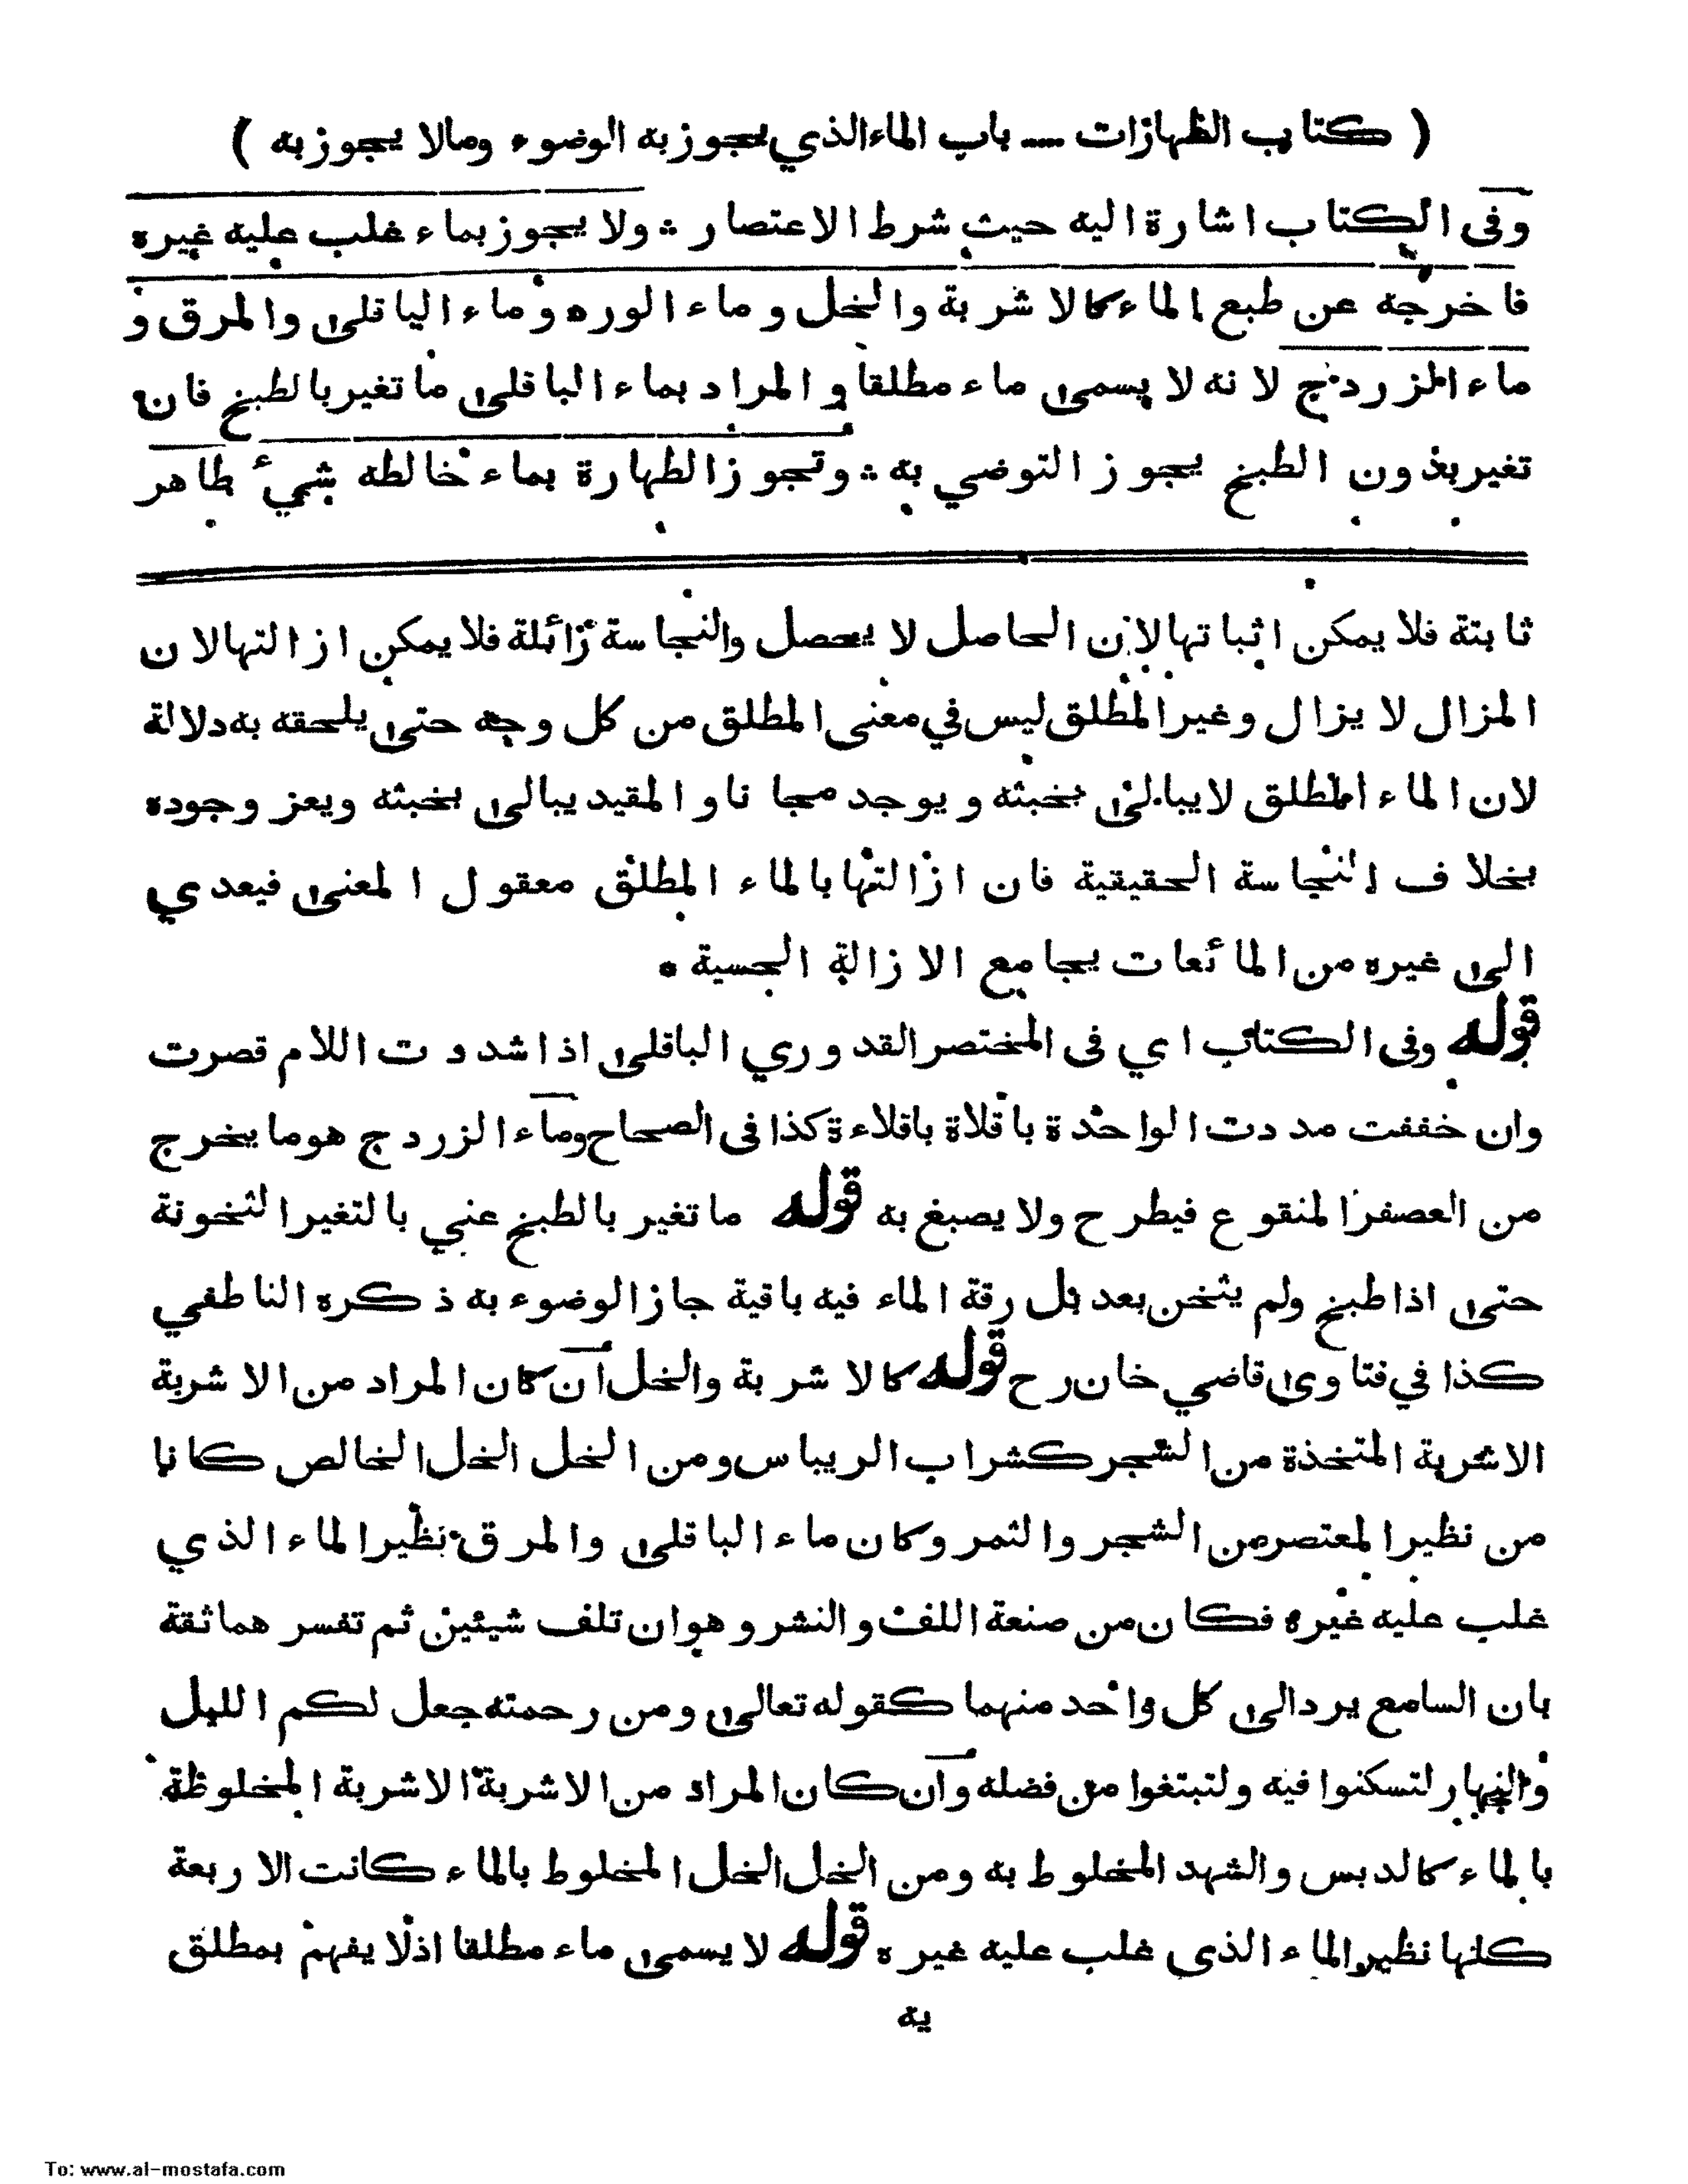 ( كتاب الطهارات ـــ باب الماء الذي يجوز به الوضوء ومالا يجوز به )
وفى الكتاب اشارة اليه حيث شرط الاعتصار ؞ ولا يجوز بماء غلب عليه غيره
فاخرجه عن طبع الماء كالاشربة والخل وماء الورد وماء الباقلى والمرق و
ماء الزردج لانه لا يسمى ماء مطلقا والمراد بماء الباقلى ما تغير بالطبخ فان
تغير بدون الطبخ يجوز التوضي به ؞ وتجوز الطهارة بماء خالطه شيء طاهر
ثابتة فلا يمكن اثباتها لان الحاصل لا يحصل والنجاسة زائلة فلا يمكن ازالتها لان
المزال لا يزال وغير المطلق ليس في معنى المطلق من كل وجه حتى يلحقه به دلالة
لان الماء المطلق لا يبالى بخبثه ويوجد مجانا و المقيد يبالى بخبثه ويعز وجوده
بخلاف النجاسة الحقيقية فان ازالتها بالماء المطلق معقول المعنى فيعدي
الى غيره من المائعات بجامع الازالة الحسية ٭
قوله وفى الكتاب اي فى المختصر القدوري الباقلى اذا شددت اللام قصرت
وان خففت مددت الواحدة باقلاة باقلاءة كذا فى الصحاح وماء الزردج هو ما يخرج
من العصفر المنقوع فيطرح ولا يصبغ به قوله ما تغير بالطبخ عني بالتغير الثخونة
حتى اذا طبخ ولم يثخن بعد بل رقة الماء فيه باقية جاز الوضوء به ذكره الناطفي
كذا في فتاوى قاضي خان رح قوله كالاشربة والخل ان كان المراد من الاشربة
الاشربة المتخذة من الشجر كشراب الريباس ومن الخل الخل الخالص كانا
من نظير المعتصر من الشجر والثمر وكان ماء الباقلى والمرق نظير الماء الذي
غلب عليه غيره فكان من صنعة اللف والنشر وهو ان تلف شيئين ثم تفسر هما ثقة
بان السامع يرد الى كل واحد منهما كقوله تعالى ومن رحمته جعل لكم الليل
والنهار لتسكنوا فيه ولتبتغوا من فضله وان كان المراد من الاشربة الاشربة المخلوطة
بالماء كالدبس والشهد المخلوط به ومن الخل الخل المخلوط بالماء كانت الاربعة
كلها نظير الماء الذي غلب عليه غيره قوله لا يسمى ماء مطلقا اذ لا يفهم بمطلق
يه
To: www.al-mostafa.com